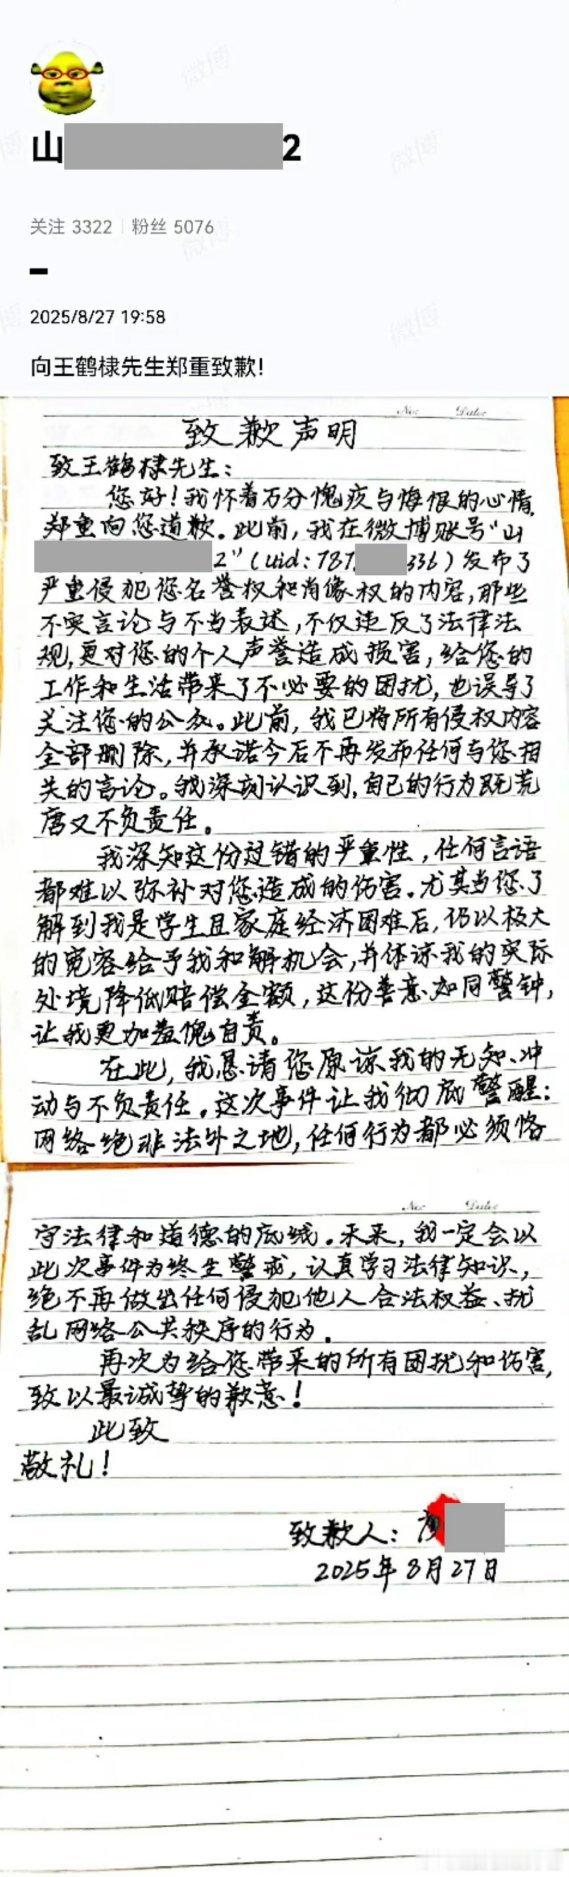 山
2
关注 3322 | 粉丝 5076
2025/8/27 19:58
向王鹤棣先生郑重致歉!
No:
Date:
致歉声明
致王鹤棣先生：
您好！我怀着万分愧疚与悔恨的心情，
郑重向您道歉。此前，我在微博账号“山
2”（uid：787 336）发布了
严重侵犯您名誉权和肖像权的内容，那些
不实言论与不当表述，不仅违反了法律法
规，更对您的个人声誉造成损害，给您的
工作和生活带来了不必要的困扰，也误导了
关注您的公众。此前，我已将所有侵权内容
全部删除，并承诺今后不再发布任何与您相
关的言论。我深刻认识到，自己的行为既荒
唐又不负责任。
我深知这份过错的严重性，任何言语
都难以弥补对您造成的伤害。尤其当您了
解到我是学生且家庭经济困难后，仍以极大
的宽容给予我和解机会，并体谅我的实际
处境降低赔偿金额，这份善意如同警钟，
让我更加羞愧自责。
在此，我恳请您原谅我的无知、冲
动与不负责任。这次事件让我彻底警醒：
网络绝非法外之地，任何行为都必须恪
No:
Date:
守法律和道德的底线。未来，我一定会以
此次事件为终生警戒，认真学习法律知识，
绝不再做出任何侵犯他人合法权益、扰
乱网络公共秩序的行为。
再次为给您带来的所有困扰和伤害，
致以最诚挚的歉意！
此致
敬礼！
致歉人：
2025年8月27日